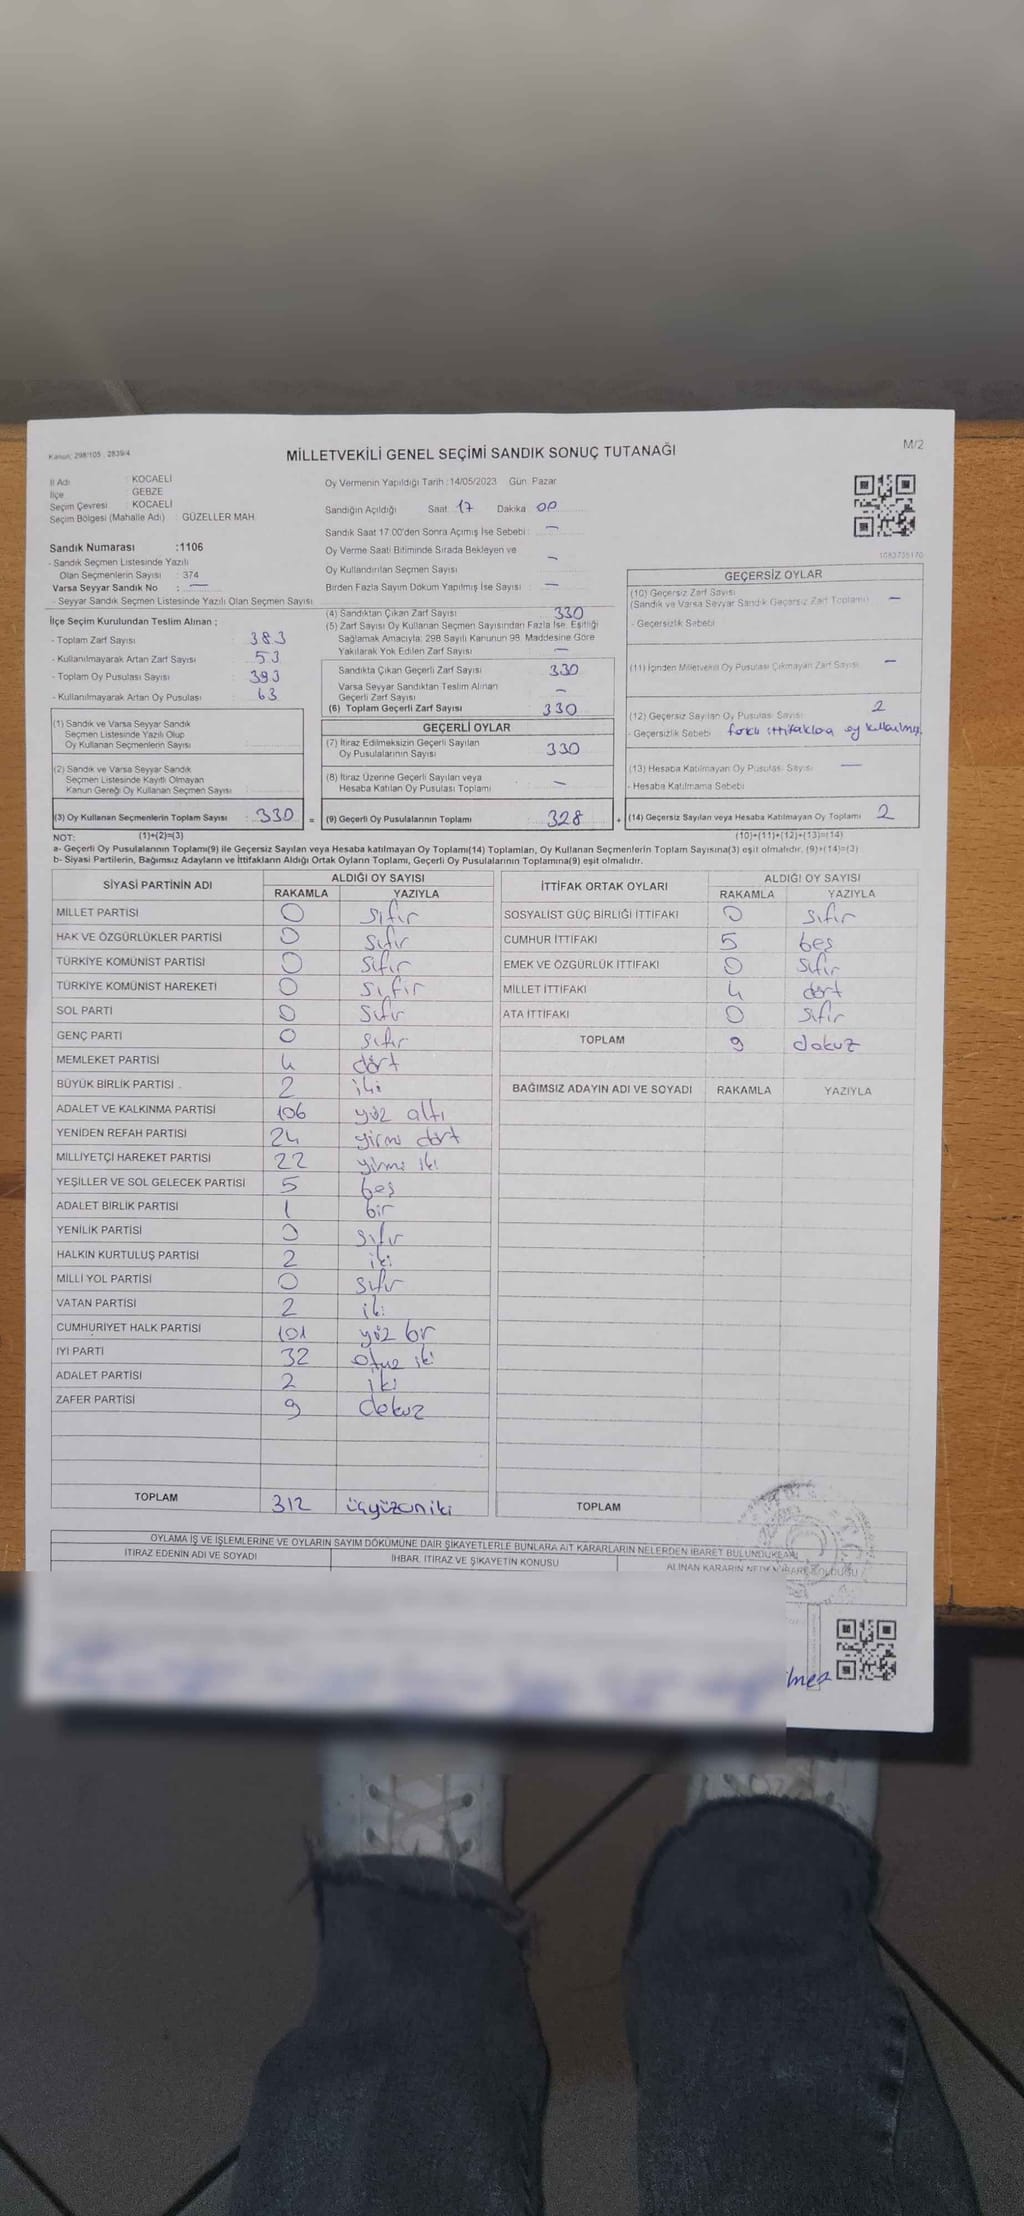 Kanun: 298/105 , 2839/4
MİLLETVEKİLİ GENEL SEÇİMİ SANDIK SONUÇ TUTANAĞI
M/2
İl Adı : KOCAELİ
İlçe : GEBZE
Seçim Çevresi : KOCAELİ
Seçim Bölgesi (Mahalle Adı) : GÜZELLER MAH.
Sandık Numarası :1106
- Sandık Seçmen Listesinde Yazılı
Olan Seçmenlerin Sayısı : 374
Varsa Seyyar Sandık No : —
- Seyyar Sandık Seçmen Listesinde Yazılı Olan Seçmen Sayısı
İlçe Seçim Kurulundan Teslim Alınan ;
- Toplam Zarf Sayısı : 383
- Kullanılmayarak Artan Zarf Sayısı : 53
- Toplam Oy Pusulası Sayısı : 393
- Kullanılmayarak Artan Oy Pusulası : 63
(1) Sandık ve Varsa Seyyar Sandık
Seçmen Listesinde Yazılı Olup
Oy Kullanan Seçmenlerin Sayısı :
(2) Sandık ve Varsa Seyyar Sandık
Seçmen Listesinde Kayıtlı Olmayan
Kanun Gereği Oy Kullanan Seçmen Sayısı :
(3) Oy Kullanan Seçmenlerin Toplam Sayısı : 330 =
Oy Vermenin Yapıldığı Tarih :14/05/2023 Gün: Pazar
Sandığın Açıldığı Saat 17 Dakika 00
Sandık Saat 17.00'den Sonra Açılmış İse Sebebi : —
Oy Verme Saati Bitiminde Sırada Bekleyen ve
Oy Kullandırılan Seçmen Sayısı —
Birden Fazla Sayım Döküm Yapılmış İse Sayısı : —
(4) Sandıktan Çıkan Zarf Sayısı 330
(5) Zarf Sayısı Oy Kullanan Seçmen Sayısından Fazla İse, Eşitliği
Sağlamak Amacıyla; 298 Sayılı Kanunun 98. Maddesine Göre
Yakılarak Yok Edilen Zarf Sayısı : —
Sandıkta Çıkan Geçerli Zarf Sayısı : 330
Varsa Seyyar Sandıktan Teslim Alınan
Geçerli Zarf Sayısı : —
(6) Toplam Geçerli Zarf Sayısı : 330
GEÇERLİ OYLAR
(7) İtiraz Edilmeksizin Geçerli Sayılan
Oy Pusulalarının Sayısı : 330
(8) İtiraz Üzerine Geçerli Sayılan veya
Hesaba Katılan Oy Pusulası Toplamı : —
(9) Geçerli Oy Pusulalarının Toplamı : 328 +
1083735170
GEÇERSİZ OYLAR
(10) Geçersiz Zarf Sayısı
(Sandık ve Varsa Seyyar Sandık Geçersiz Zarf Toplamı) —
- Geçersizlik Sebebi
(11) İçinden Milletvekili Oy Pusulası Çıkmayan Zarf Sayısı —
(12) Geçersiz Sayılan Oy Pusulası Sayısı 2
- Geçersizlik Sebebi farklı ittifaklara oy kullanılmış
(13) Hesaba Katılmayan Oy Pusulası Sayısı —
- Hesaba Katılmama Sebebi
(14) Geçersiz Sayılan veya Hesaba Katılmayan Oy Toplamı 2
NOT: (1)+(2)=(3) (10)+(11)+(12)+(13)=(14)
a- Geçerli Oy Pusulalarının Toplamı(9) ile Geçersiz Sayılan veya Hesaba katılmayan Oy Toplamı(14) Toplamları, Oy Kullanan Seçmenlerin Toplam Sayısına(3) eşit olmalıdır. (9)+(14)=(3)
b- Siyasi Partilerin, Bağımsız Adayların ve İttifakların Aldığı Ortak Oyların Toplamı, Geçerli Oy Pusulalarının Toplamına(9) eşit olmalıdır.
SİYASİ PARTİNİN ADI ALDIĞI OY SAYISI
RAKAMLA YAZIYLA
MİLLET PARTİSİ 0 sıfır
HAK VE ÖZGÜRLÜKLER PARTİSİ 0 sıfır
TÜRKİYE KOMÜNİST PARTİSİ 0 sıfır
TÜRKİYE KOMÜNİST HAREKETİ 0 sıfır
SOL PARTİ 0 sıfır
GENÇ PARTİ 0 sıfır
MEMLEKET PARTİSİ 4 dört
BÜYÜK BİRLİK PARTİSİ 2 iki
ADALET VE KALKINMA PARTİSİ 106 yüz altı
YENİDEN REFAH PARTİSİ 24 yirmi dört
MİLLİYETÇİ HAREKET PARTİSİ 22 yirmi iki
YEŞİLLER VE SOL GELECEK PARTİSİ 5 beş
ADALET BİRLİK PARTİSİ 1 bir
YENİLİK PARTİSİ 0 sıfır
HALKIN KURTULUŞ PARTİSİ 2 iki
MİLLİ YOL PARTİSİ 0 sıfır
VATAN PARTİSİ 2 iki
CUMHURİYET HALK PARTİSİ 101 yüz bir
İYİ PARTİ 32 otuz iki
ADALET PARTİSİ 2 iki
ZAFER PARTİSİ 9 dokuz
TOPLAM 312 üçyüzoniki
İTTİFAK ORTAK OYLARI ALDIĞI OY SAYISI
RAKAMLA YAZIYLA
SOSYALİST GÜÇ BİRLİĞİ İTTİFAKI 0 sıfır
CUMHUR İTTİFAKI 5 beş
EMEK VE ÖZGÜRLÜK İTTİFAKI 0 sıfır
MİLLET İTTİFAKI 4 dört
ATA İTTİFAKI 0 sıfır
TOPLAM 9 dokuz
BAĞIMSIZ ADAYIN ADI VE SOYADI RAKAMLA YAZIYLA
TOPLAM
OYLAMA İŞ VE İŞLEMLERİNE VE OYLARIN SAYIM DÖKÜMÜNE DAİR ŞİKAYETLERLE BUNLARA AİT KARARLARIN NELERDEN İBARET BULUNDUKLARI
İTİRAZ EDENİN ADI VE SOYADI İHBAR, İTİRAZ VE ŞİKAYETİN KONUSU ALINAN KARARIN NEDEN İBARET OLDUĞU